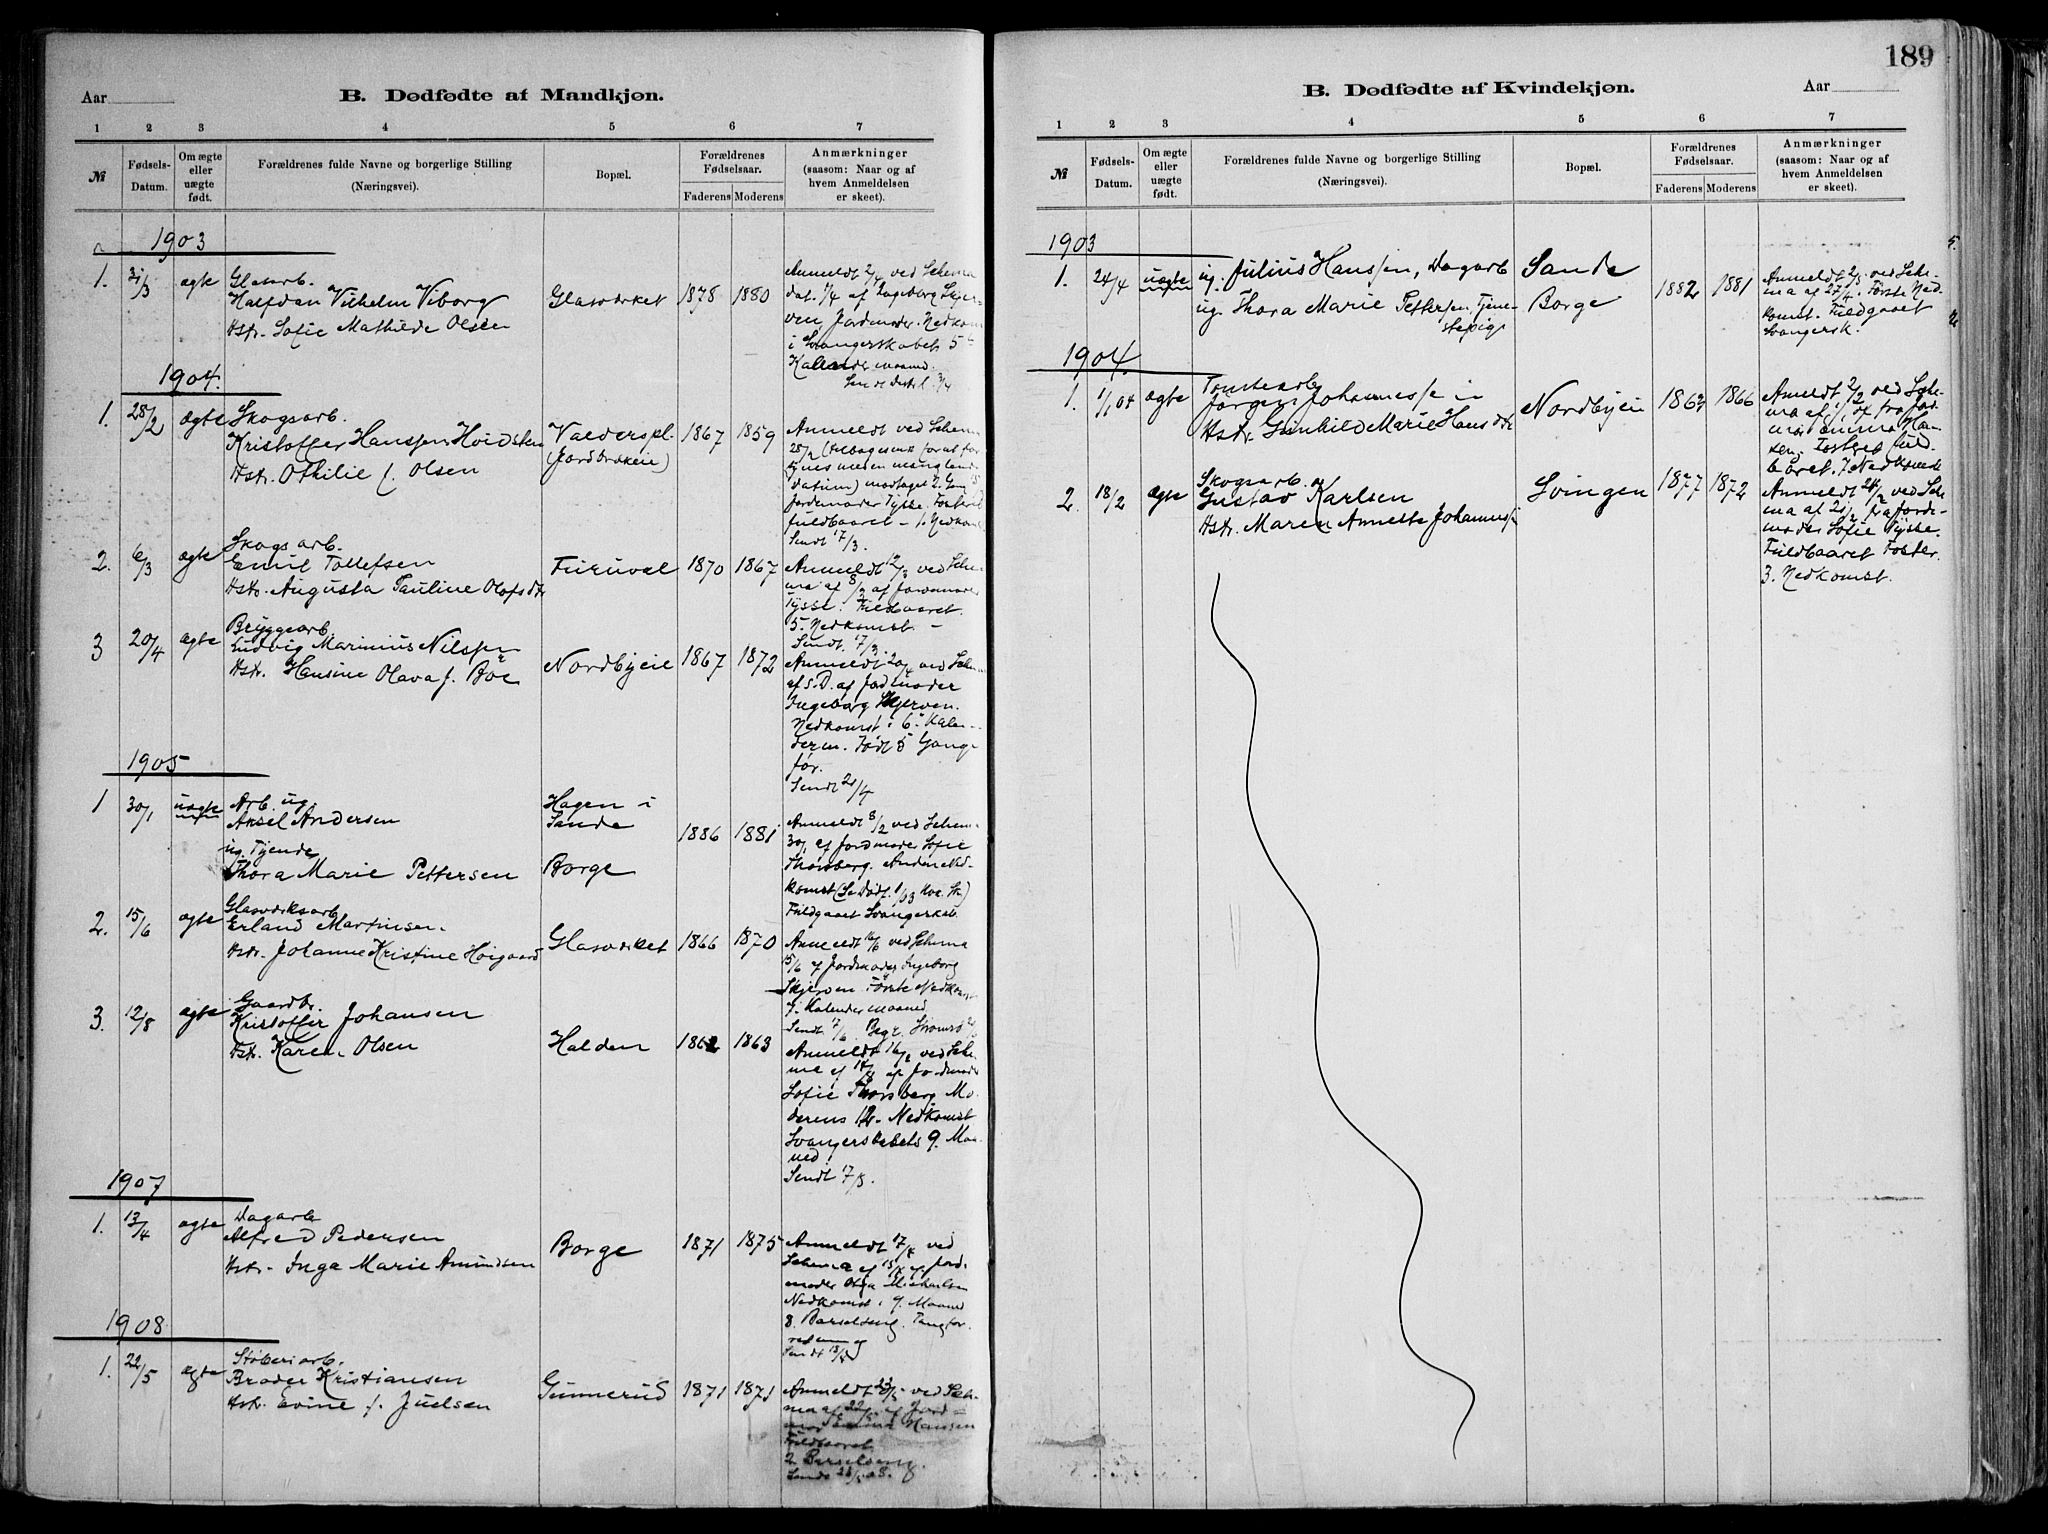 Aar
B. Dødfødte af Mandkjøn.
1 2 3 4 5 6 7
№
Fødsels-Datum.
Om ægte eller uægte født.
Forældrenes fulde Navne og borgerlige Stilling (Næringsvei).
Bopæl.
Forældrenes Fødselsaar.
Faderens Moderens
Anmærkninger (saasom: Naar og af hvem Anmeldelsen er skeet).
1903
1. 31/3 ægte Glasarb.
Halfdan Vilhelm Viborg
Hstr. Sofie Mathilde Olsen
Glasværket 1878 1880
Anmeldt 2/4 ved Schema
dat. 1/4 af Ingeborg Skjer-
ven, Jordmoder. Nedkom
i Svangerskabets 5te
Kalendermaaned.
1904.
1. 28/2 ægte Skogsarb.
Kristoffer Hanssen Hvidsten
Hstr. Othilie f. Olsen
Valderspl.
1867 1859
Anmeldt ved Schema
datum) modtaget
Jordemoder Tysse. Foster
fuldbaaret - Nedkom
Sendt 17/3.
2. 6/3 ægte Skogsarb.
Emil Tollefsen
Hstr. Augusta Pauline Olafsdtr
Furuval 1870 1867
Anmeldt 12/3 ved Sche-
ma af 8/3 af Jordmoder
Tysse. Fuldbaaret.
5. Nedkomst. -
Sendt 17/3.
3 20/4 ægte Bryggearb.
Ludvig Marinius Nilssen
Hstr. Hansine Olava f. Böe
Nordbyeie 1867 1872
Anmeldt 20/4 ved Schem
af s.D. af Jordmoder
Ingeborg Skjerven.
Nedkomst i 6. Kalen-
derm. Født 5 Gange
før.
Sendt 21/4
1905
1 30/1 uægte Arb. ug
Aksel Andersen
ug. Tjende
Thora Marie Pettersen
Hagen i
Sande
Borge
1886 1881
Anmeldt 8/2 ved Schema
30/1 af Jordmoder Sofie
Thorsberg. Anden Ned-
komst (Se Dødf. 1/03 Kv.)
Fuldgaaet Svangerskab.
2. 15/6 ægte Glasværksarb.
Erland Martinsen.
Hstr. Johanne Kristine Höigaard
Glasværket 1866 1870
Anmeldt 16/6 ved Schema
15/6 af Jordmoder Ingeborg
Skjerven. Første Nedkomst
7. Kalendermaaned
Sendt 17/6 Begr. Strømsö
3. 12/8 ægte Gaardbr.
Kristoffer Johansen
Hstr. Karen Olsen
Halden 1862 1863
Anmeldt 16/8 ved Sche-
ma af 14/8 af Jordmoder
Sofie Thorsberg Mo-
derens 12. Nedkomst
Svangerskabets 9. Maa-
ned.
Sendt 17/8.
1907
1. 13/4 ægte Dagarb
Alfred Pedersen
Hstr. Inga Marie Amundsen
Borge 1871 1875
Anmeldt 17/4 ved
Schema af 15/4 af Jord-
moder Olga Michaelsen
Nedkomst i 9. Maaned
8. Barselseng. Tangfor-
Sendt 18/4
1908
1. 22/5 ægte Støberiarb.
Broder Kristiansen
Hstr. Evine f. Juelsen
Gunnerud 1871 1871
Anmeldt 23/5 ved Sche-
ma af 22/5 af Jord-
Hansen
Fuldbaaret
2 Barselseng.
189
B. Dødfødte af Kvindekjøn.
Aar
1 2 3 4 5 6 7
№
Fødsels-Datum.
Om ægte eller uægte født.
Forældrenes fulde Navne og borgerlige Stilling (Næringsvei).
Bopæl.
Forældrenes Fødselsaar.
Faderens Moderens
Anmærkninger (saasom: Naar og af hvem Anmeldelsen er skeet).
1903
1. 24/4 uægte ug. Julius Hanssen, Dagarb
ug. Thora Marie Pettersen, Tjene-
stepige
Sande
Borge
1882 1881
Anmeldt 2/5 ved Sche-
ma af 27/4. Første Ned-
komst. Fuldgaaet
Svangersk.
1904.
1. 1/1 04 ægte Tomtearb
Jörgen Johannessen
Hstr. Gunhild Marie Hansdtr
Nordbyeie 1867 1866
Anmeldt 2/2 ved Sche-
ma af fra Jord-
mor Emma Han-
sen. Fostret fuld-
baaret. 7 Nedkomst
2. 18/2 ægte Skogsarb.
Gustav Karlsen
Hstr. Maren Annette Johannes
Svingen 1877 1872
Anmeldt 24/2 ved Sche-
ma af 21/2 fra Jorde-
moder Sofie Tysse.
Fuldbaaret Foster.
3. Nedkomst.